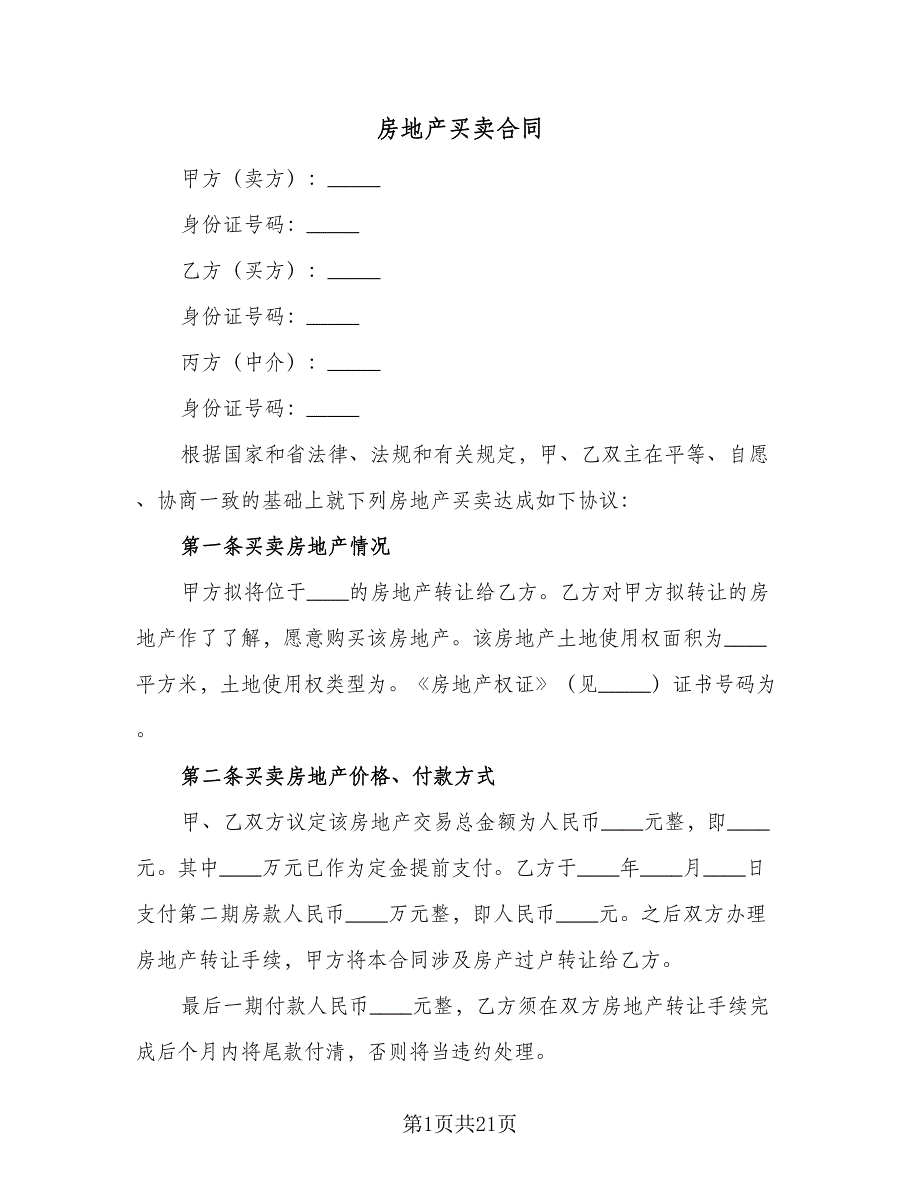 房地产买卖合同
甲方（卖方）：_____
身份证号码：_____
乙方（买方）：_____
身份证号码：_____
丙方（中介）：_____
身份证号码：_____
根据国家和省法律、法规和有关规定，甲、乙双主在平等、自愿
、协商一致的基础上就下列房地产买卖达成如下协议：
第一条买卖房地产情况
甲方拟将位于____的房地产转让给乙方。乙方对甲方拟转让的房
地产作了了解，愿意购买该房地产。该房地产土地使用权面积为____
平方米，土地使用权类型为。《房地产权证》（见_____）证书号码为
。
第二条买卖房地产价格、付款方式
甲、乙双方议定该房地产交易总金额为人民币____元整，即____
元。其中____万元已作为定金提前支付。乙方于____年____月____日
支付第二期房款人民币____万元整，即人民币____元。之后双方办理
房地产转让手续，甲方将本合同涉及房产过户转让给乙方。
最后一期付款人民币____元整，乙方须在双方房地产转让手续完
成后个月内将尾款付清，否则将当违约处理。
第1页共21页